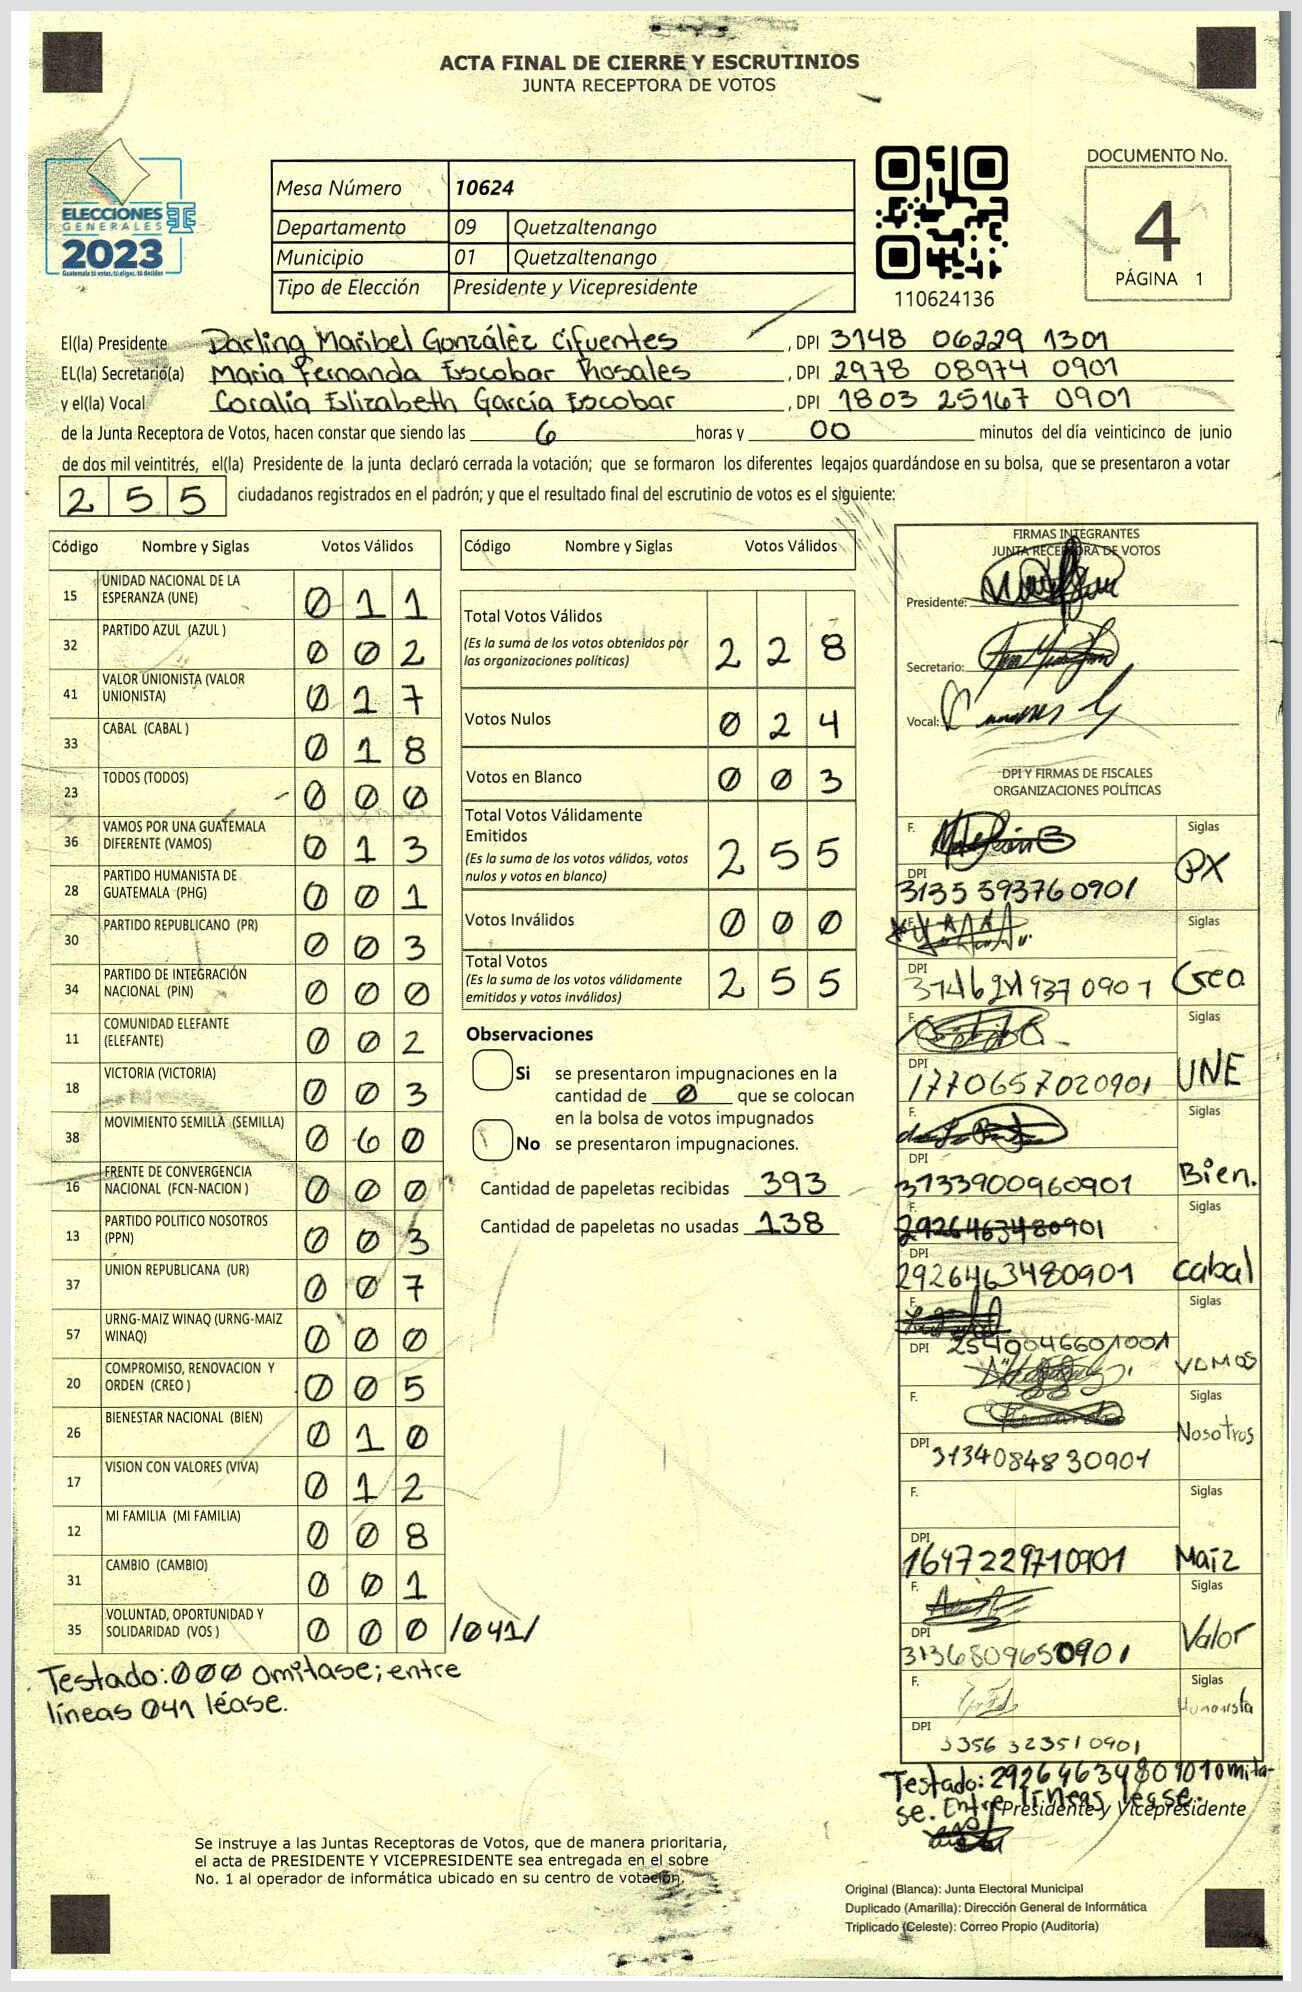 ACTA FINAL DE CIERRE Y ESCRUTINIOS
JUNTA RECEPTORA DE VOTOS
ELECCIONES
GENERALES
2023
Guatemala tú votas, tú eliges, tú decides
Mesa Número 10624
Departamento 09 Quetzaltenango
Municipio 01 Quetzaltenango
Tipo de Elección Presidente y Vicepresidente
110624136
DOCUMENTO No.
4
PÁGINA 1
El(la) Presidente Darling Maribel González Cifuentes , DPI 3148 06229 1301
EL(la) Secretario(a) Maria Fernanda Escobar Rosales , DPI 2978 08974 0901
y el(la) Vocal Coralia Elizabeth García Escobar , DPI 1803 25167 0901
de la Junta Receptora de Votos, hacen constar que siendo las 6 horas y 00 minutos del día veinticinco de junio
de dos mil veintitrés, el(la) Presidente de la junta declaró cerrada la votación; que se formaron los diferentes legajos guardándose en su bolsa, que se presentaron a votar
2 5 5 ciudadanos registrados en el padrón; y que el resultado final del escrutinio de votos es el siguiente:
Código Nombre y Siglas Votos Válidos
15 UNIDAD NACIONAL DE LA ESPERANZA (UNE) 0 1 1
32 PARTIDO AZUL (AZUL ) 0 0 2
41 VALOR UNIONISTA (VALOR UNIONISTA) 0 1 7
33 CABAL (CABAL ) 0 1 8
23 TODOS (TODOS) 0 0 0
36 VAMOS POR UNA GUATEMALA DIFERENTE (VAMOS) 0 1 3
28 PARTIDO HUMANISTA DE GUATEMALA (PHG) 0 0 1
30 PARTIDO REPUBLICANO (PR) 0 0 3
34 PARTIDO DE INTEGRACIÓN NACIONAL (PIN) 0 0 0
11 COMUNIDAD ELEFANTE (ELEFANTE) 0 0 2
18 VICTORIA (VICTORIA) 0 0 3
38 MOVIMIENTO SEMILLA (SEMILLA) 0 6 0
16 FRENTE DE CONVERGENCIA NACIONAL (FCN-NACION ) 0 0 0
13 PARTIDO POLITICO NOSOTROS (PPN) 0 0 3
37 UNION REPUBLICANA (UR) 0 0 7
57 URNG-MAIZ WINAQ (URNG-MAIZ WINAQ) 0 0 0
20 COMPROMISO, RENOVACION Y ORDEN (CREO ) 0 0 5
26 BIENESTAR NACIONAL (BIEN) 0 1 0
17 VISION CON VALORES (VIVA) 0 1 2
12 MI FAMILIA (MI FAMILIA) 0 0 8
31 CAMBIO (CAMBIO) 0 0 1
35 VOLUNTAD, OPORTUNIDAD Y SOLIDARIDAD (VOS ) 0 0 0 /041/
Testado: 000 omitase; entre
líneas 041 léase.
Código Nombre y Siglas Votos Válidos
Total Votos Válidos
(Es la suma de los votos obtenidos por
las organizaciones políticas) 2 2 8
Votos Nulos 0 2 4
Votos en Blanco 0 0 3
Total Votos Válidamente
Emitidos
(Es la suma de los votos válidos, votos
nulos y votos en blanco) 2 5 5
Votos Inválidos 0 0 0
Total Votos
(Es la suma de los votos válidamente
emitidos y votos inválidos) 2 5 5
Observaciones
Si se presentaron impugnaciones en la
cantidad de 0 que se colocan
en la bolsa de votos impugnados
No se presentaron impugnaciones.
Cantidad de papeletas recibidas 393
Cantidad de papeletas no usadas 138
FIRMAS INTEGRANTES
JUNTA RECEPTORA DE VOTOS
Presidente:
Secretario:
Vocal:
DPI Y FIRMAS DE FISCALES
ORGANIZACIONES POLÍTICAS
F. Siglas
DPI
3135 593760901 PX
F. Siglas
DPI
0901 Creo
F. Siglas
DPI
1770657020901 UNE
F. Siglas
DPI
3133900960901 Bien.
F. 2926463480901 Siglas
DPI
2926463480901 cabal
F. Siglas
DPI 25490046601001 VAMOS
F. Siglas
Nosotros
DPI 3134084830901
F. Siglas
DPI
1647229710901 Maíz
F. Siglas
DPI
3136809650901 Valor
F. Siglas
Humanista
DPI
3356 32351 0901
Testado: 2926463480901 omita-
se. Entre líneas léase.
Presidente y Vicepresidente
Se instruye a las Juntas Receptoras de Votos, que de manera prioritaria,
el acta de PRESIDENTE Y VICEPRESIDENTE sea entregada en el sobre
No. 1 al operador de informática ubicado en su centro de votación.
Original (Blanca): Junta Electoral Municipal
Duplicado (Amarilla): Dirección General de Informática
Triplicado (Celeste): Correo Propio (Auditoría)